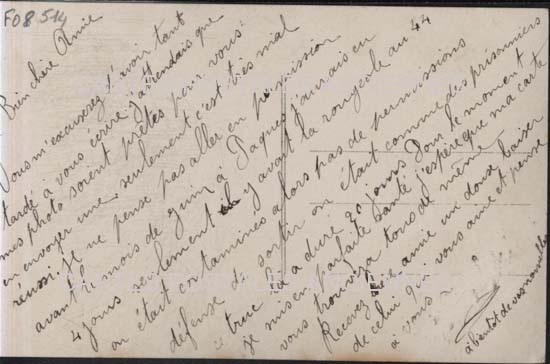 F08514
Bien chère Annie
Vous m'excuserez d'avoir tant
tardé a vous écrire j'attendais que
mes photo soient prêtes pour vous
en envoyer une seulement c'est très mal
réussi. Je ne pense pas aller en permission
avant le mois de Juin à Paques j'aurais eu
4 jours seulement il y avait la rougeole au 44
on était contaminés alors pas de permissions
défense de sortir on était comme des prisonniers
ce truc là a duré 20 jours Pour le moment
je suis en parfaite santé j'espère que ma carte
vous trouvera tous de même
Recevez chère amie un doux baiser
de celui qui vous aime et pense
à vous
à bientôt de vos nouvelles